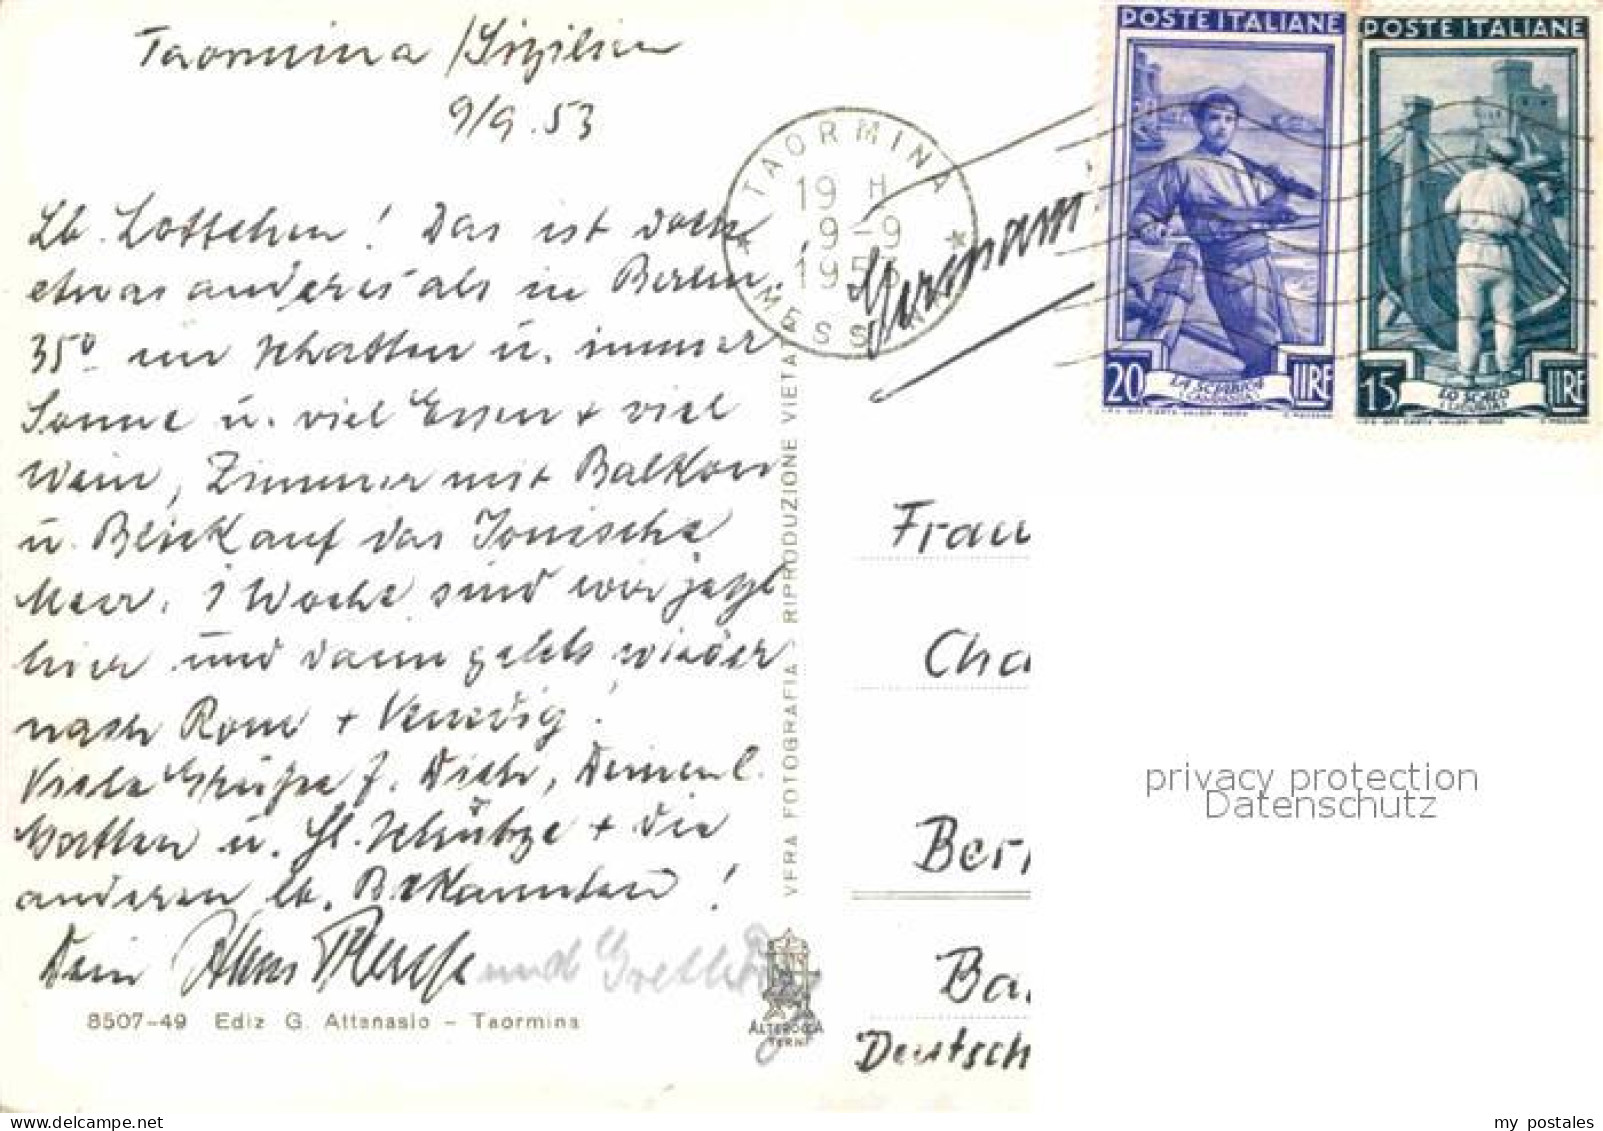 Taormina / Sizilien
9/9.53
Lb. Lottchen! Das ist doch
etwas anderes als in Berlin.
35° im Schatten u. immer
Sonne u. viel Essen + viel
Wein, Zimmer mit Balkon
u. Blick auf das Jonische
Meer. 1 Woche sind wir jetzt
hier und dann gehts wieder
nach Rom + Venedig!
Viele Grüsse f. Dich, Deinen l.
Gatten u. Hl. Schütze + die
anderen lb. Bekannten!
Dein Hans
und
8507-49 Ediz G. Attanasio - Taormina
VERA FOTOGRAFIA - RIPRODUZIONE VIETATA
ALTEROCCA
TERNI
TAORMINA
19 H
9-9
1953
MESSINA
Germania
POSTE ITALIANE
20 LIRE
LA SCIABICA
CAMPANIA
POSTE ITALIANE
15 LIRE
LO SCALO
LIGURIA
Frau
Cha
Ber
Ba
Deutsch
privacy protection
Datenschutz
my postales